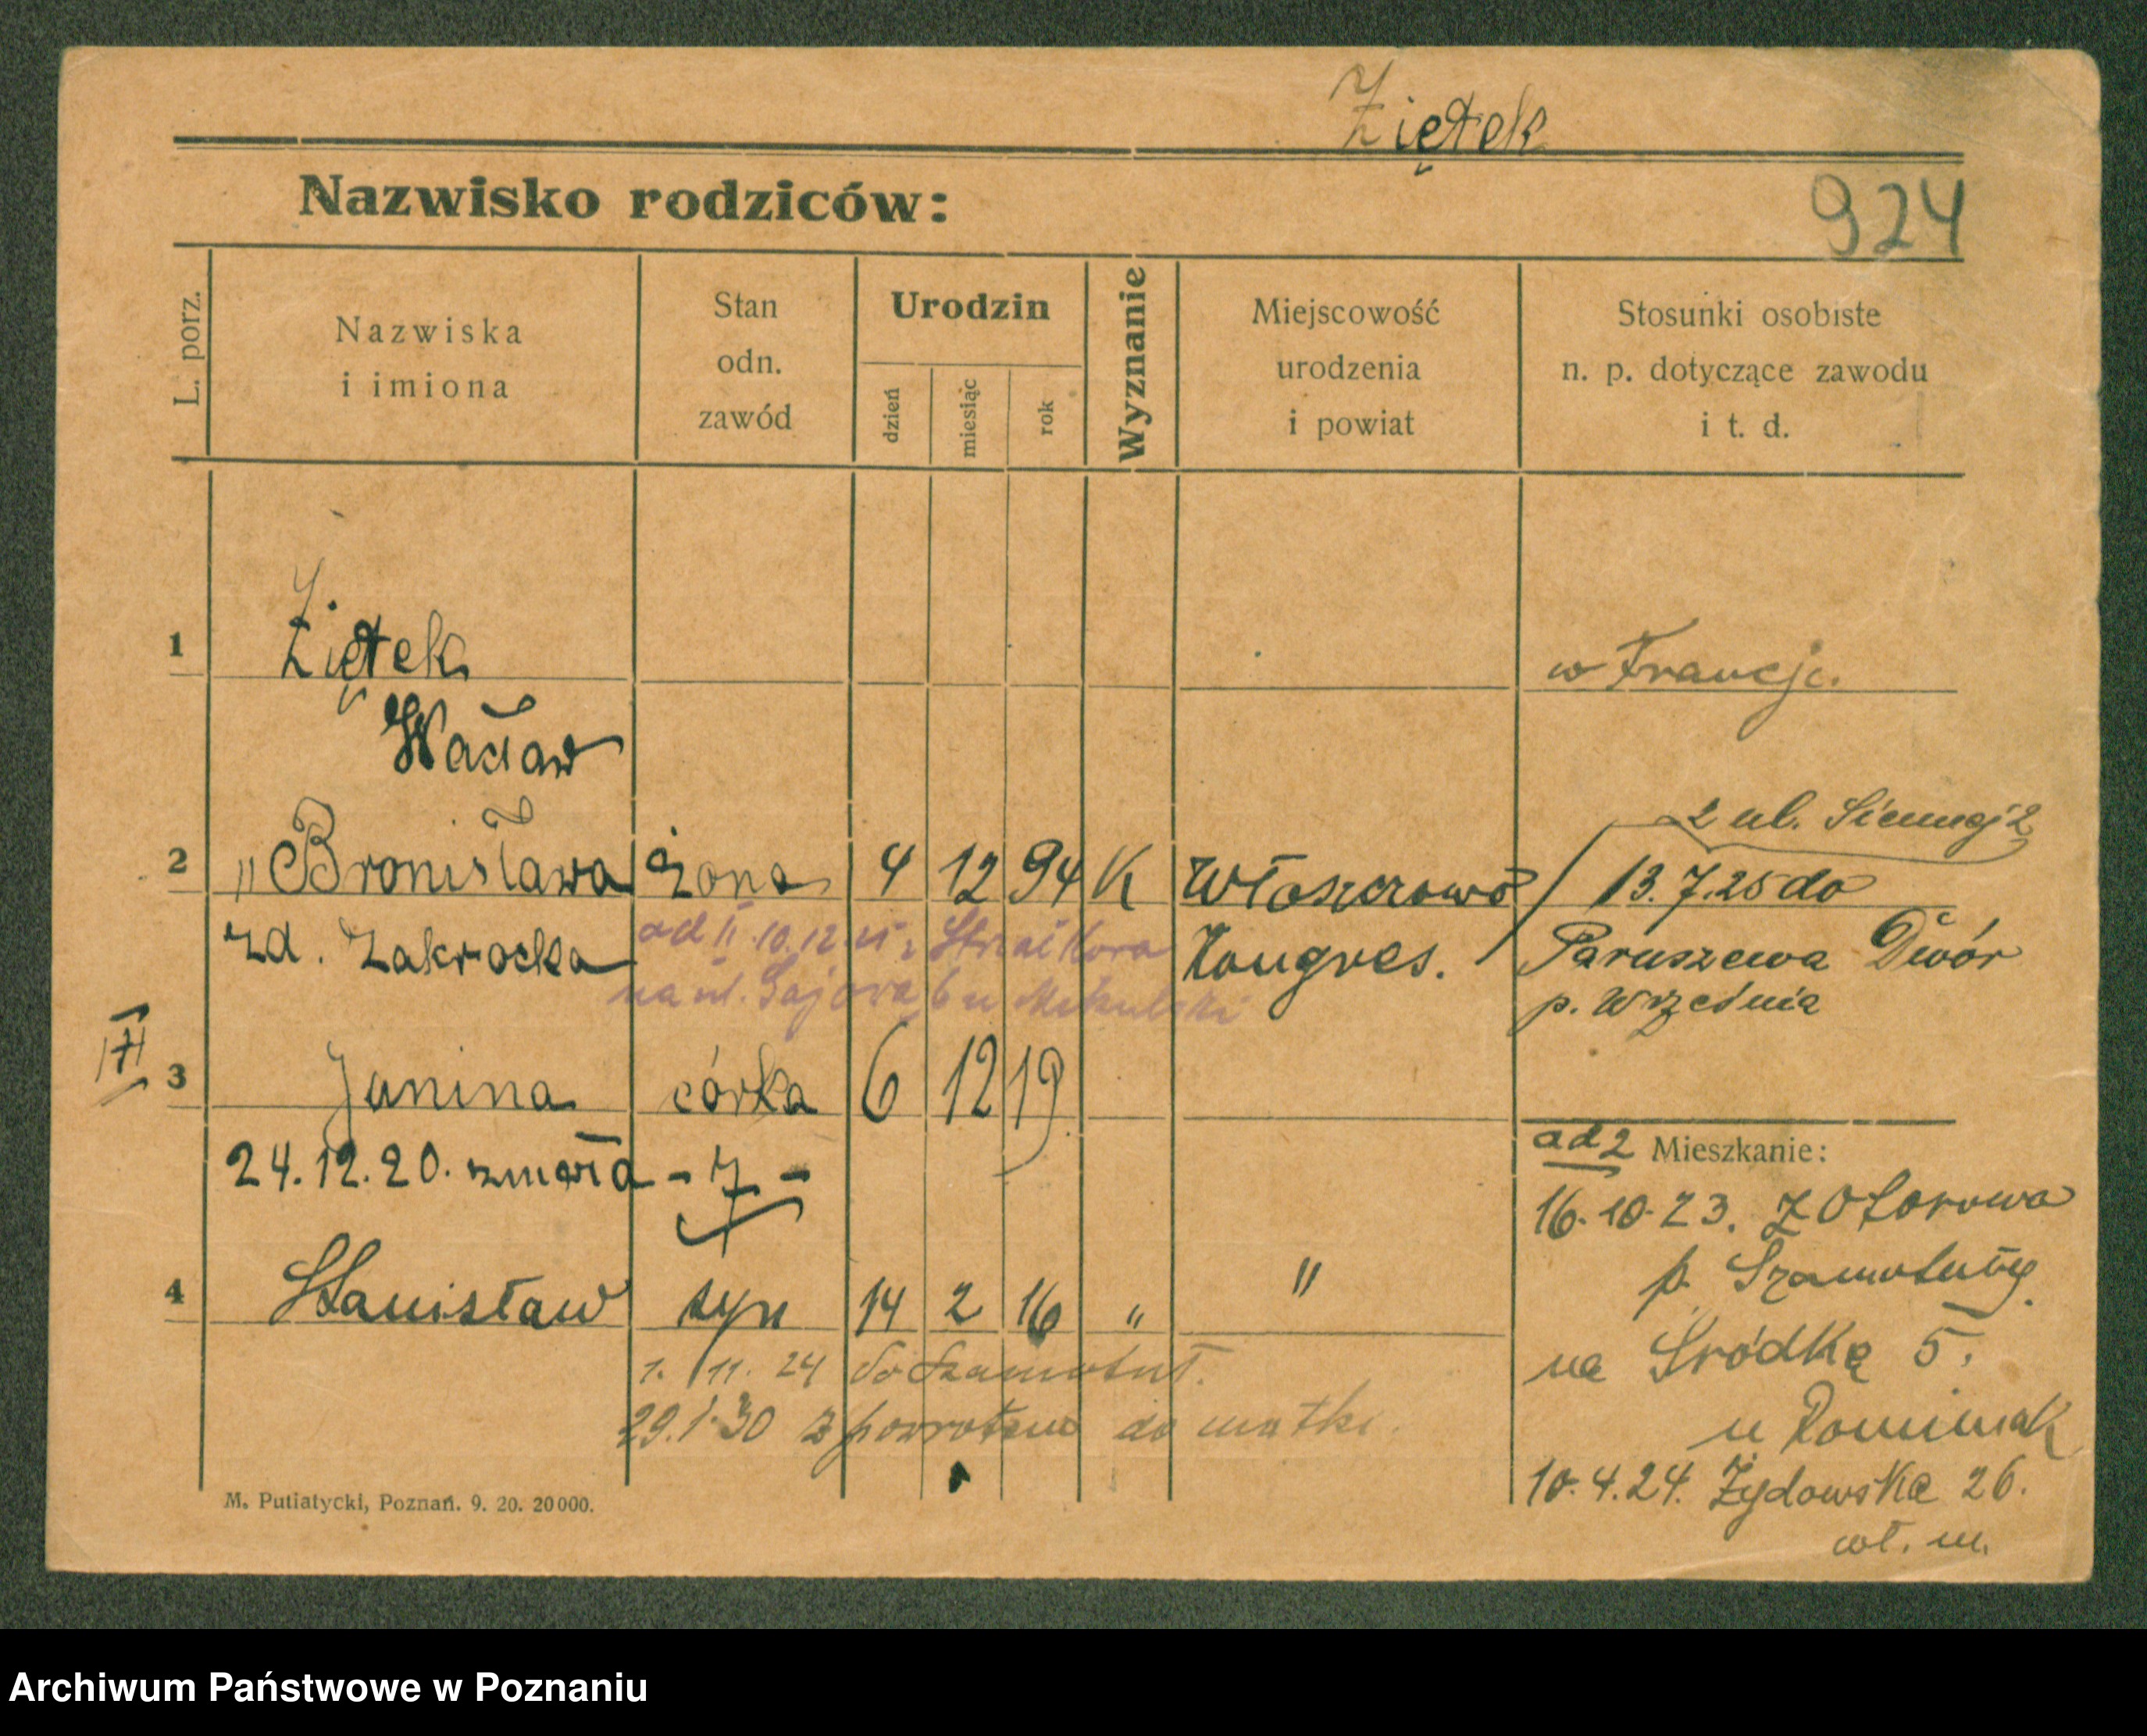 Ziętek
Nazwisko rodziców:
924
L. porz.
Nazwiska
i imiona
Stan
odn.
zawód
Urodzin
dzień
miesiąc
rok
Wyznanie
Miejscowość
urodzenia
i powiat
Stosunki osobiste
n. p. dotyczące zawodu
i t. d.
1 Ziętek w Francji.
Wacław
z ul. Siennej 2
2 " Bronisława żona 4 12 94 K Włoszczowa 13.7.25 do
zd. Zakrocka Kongres. Paruszewa Dwór
ad II. 10.12.25 z
na ul. Gajową 6 u
p. Września
3 Janina córka 6 12 19
24.12.20. zmarła - 7 -
ad 2 Mieszkanie:
16.10.23. z Otorowa
p. Szamotuły
4 Stanisław syn 14 2 16 " "
1. 11. 24 do Szamotuł.
29.1.30 z powrotem do matki.
na Śródkę 5.
u
10.4.24. Żydowska 26.
wł. m.
M. Putiatycki, Poznań. 9. 20. 20000.
Archiwum Państwowe w Poznaniu